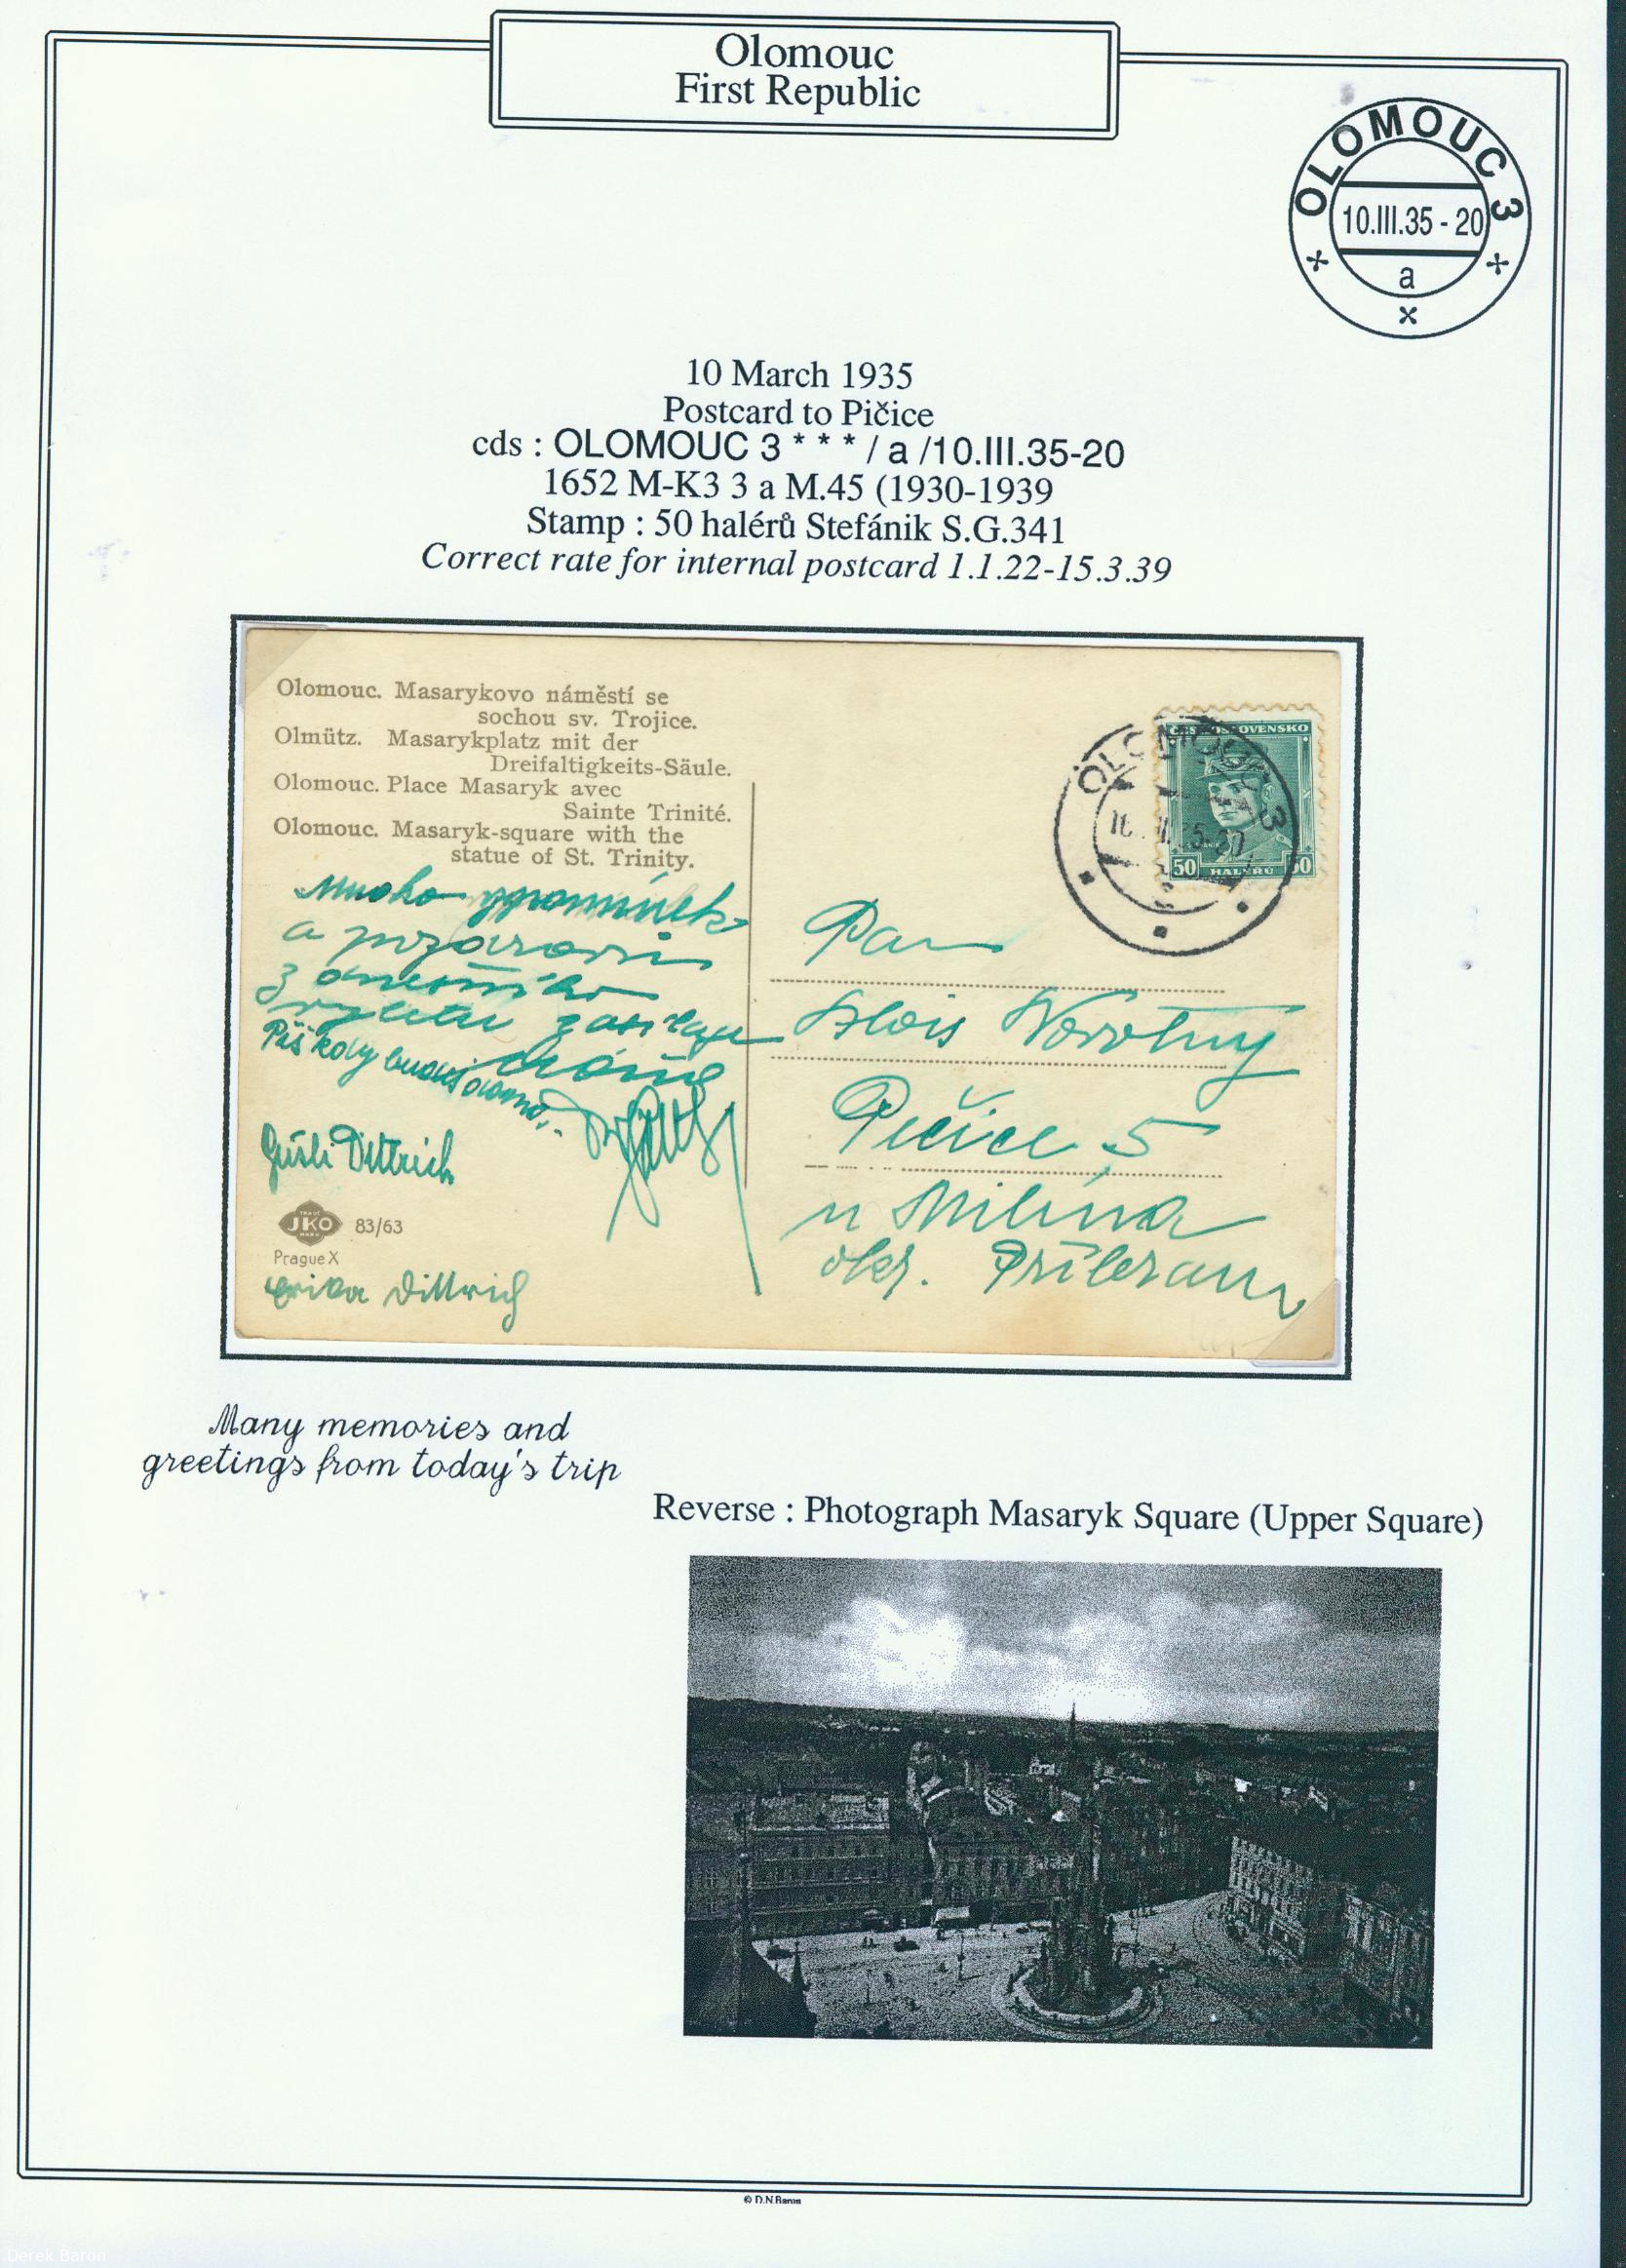 Olomouc
First Republic
OLOMOUC 3
10.III.35 - 20
a
10 March 1935
Postcard to Pičice
cds : OLOMOUC 3 * * * / a /10.III.35-20
1652 M-K3 3 a M.45 (1930-1939
Stamp : 50 halérů Stefánik S.G.341
Correct rate for internal postcard 1.1.22-15.3.39
Olomouc. Masarykovo náměstí se
sochou sv. Trojice.
Olmütz. Masarykplatz mit der
Dreifaltigkeits-Säule.
Olomouc. Place Masaryk avec
Sainte Trinité.
Olomouc. Masaryk-square with the
statue of St. Trinity.
ČESKOSLOVENSKO
50 HALÉŘŮ 50
OLOMOUC 3
Mnoho vzpomínek
a pozdravů
z dnešního
výletu zasílají
Piš kdy budeš doma.
Gusti Dittrich
TRADE
JKO
MARK
83/63
Prague X
Erika Dittrich
Pan
Alois Novotný
Pičice 5
u Milína
okr. Příbram
Many memories and
greetings from today's trip
Reverse : Photograph Masaryk Square (Upper Square)
© D.N.Baron
Derek Baron